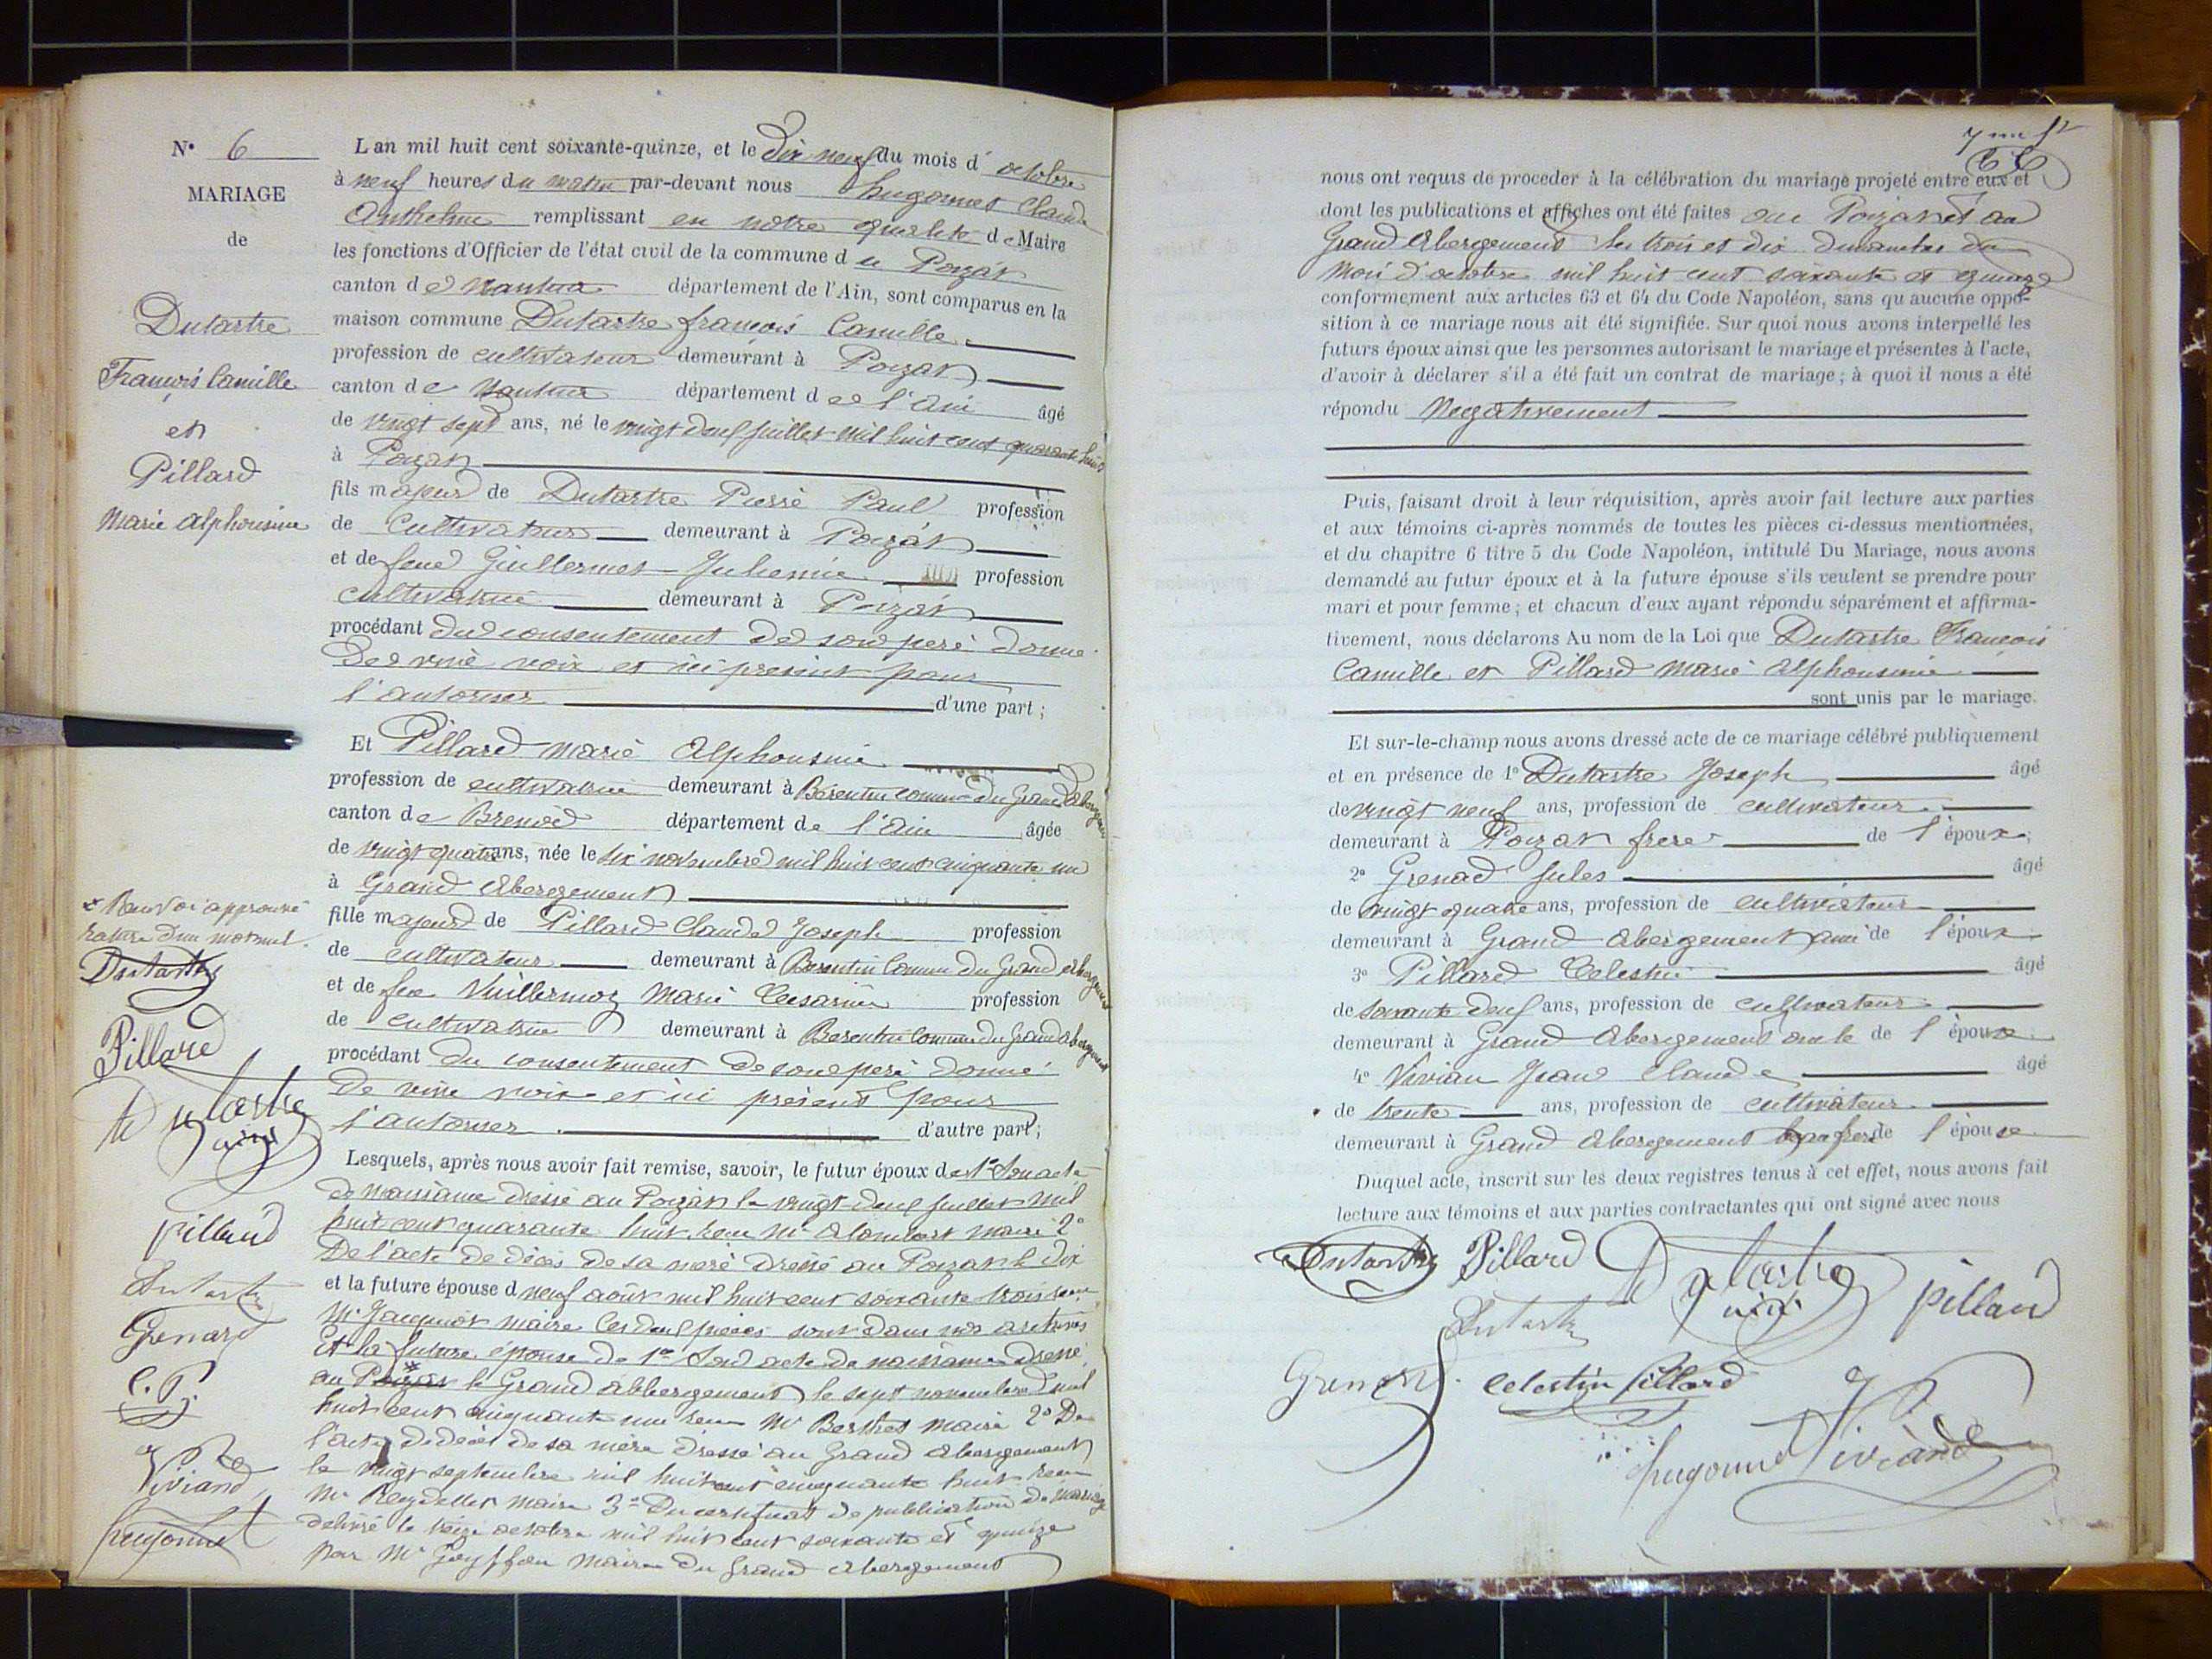 N° 6
MARIAGE
de
Dutartre
François Camille
et
Pillard
Marie Alphonsine
L'an mil huit cent soixante-quinze, et le Dix neuf du mois d'octobre
à neuf heures du matin par-devant nous hugonnet Claude
Anthelme remplissant en notre qualité de Maire
les fonctions d'Officier de l'état civil de la commune du Poizat
canton de Nantua département de l'Ain, sont comparus en la
maison commune Dutartre françois Camille
profession de cultivateur demeurant à Poizat
canton de Nantua département de l'Ain âgé
de vingt sept ans, né le vingt deux juillet mil huit cent quarante huit
à Poizat
fils majeur de Dutartre Pierre Paul profession
de Cultivateur demeurant à Poizat
et de feue Guillermet Juhemie profession
cultivatrice demeurant à Poizat
procédant du consentement de son père donné
de vive voix et ici présent pour
l'autoriser d'une part;
Et Pillard marie Alphonsine
profession de cultivatrice demeurant à Bérentin commune du Grand Abergement
canton de Brenod département de l'Ain âgée
de vingt quatre ans, née le six novembre mil huit cent cinquante un
à Grand Abergement
fille majeure de Pillard Claude Joseph profession
de cultivateur demeurant à Bérentin Commune du Grand abergement
et de feue Vuillermoz Marie Césarine profession
de cultivatrice demeurant à Bérentin Commune du Grand abergement
procédant du consentement de son père donné
de vive voix et ici présent pour
l'autoriser d'autre part;
Lesquels, après nous avoir fait remise, savoir, le futur époux de 1° Son acte
de naissance dressé au Poizat le vingt-deux juillet mil
huit cent quarante huit reçu Mr Alombert maire 2°
De l'acte de décès de sa mère dressé au Poizat le dix
et la future épouse d neuf août mil huit cent soixante trois reçu
Mr Jacquiot maire Ces deux pièces sont dans nos archives
Et la future épouse de 1° Son acte de naissance dressé
au Poizat * le Grand abbergement le sept novembre mil
huit cent cinquante un reçu Mr Berthet Maire 2° De
l'acte de décès de sa mère dressé au Grand Abergement
le vingt septembre mil huit cent cinquante huit reçu
Mr Reydellet maire 3° Du certificat de publication de mariage
délivré le seize octobre mil huit cent soixante et quinze
par Mr Goyffon Maire du Grand Abergement
* Renvoi approuvé
rature d'un mot nul.
Dutartre
Pillard
Dutartre
pillard
Dutartre
Grenard
C. P.
Viviand
hugonnet
7me ft
nous ont requis de procéder à la célébration du mariage projeté entre eux et
dont les publications et affiches ont été faites au Poizat et au
Grand Abergement les trois et dix dimanches du
Mois d'octobre mil huit cent soixante et quinze
conformément aux articles 63 et 64 du Code Napoléon, sans qu'aucune oppo-
sition à ce mariage nous ait été signifiée. Sur quoi nous avons interpellé les
futurs époux ainsi que les personnes autorisant le mariage et présentes à l'acte,
d'avoir à déclarer s'il a été fait un contrat de mariage; à quoi il nous a été
répondu Négativement
Puis, faisant droit à leur réquisition, après avoir fait lecture aux parties
et aux témoins ci-après nommés de toutes les pièces ci-dessus mentionnées,
et du chapitre 6 titre 5 du Code Napoléon, intitulé Du Mariage, nous avons
demandé au futur époux et à la future épouse s'ils veulent se prendre pour
mari et pour femme; et chacun d'eux ayant répondu séparément et affirma-
tivement, nous déclarons Au nom de la Loi que Dutartre François
Camille et Pillard Marie Alphonsine
sont unis par le mariage.
Et sur-le-champ nous avons dressé acte de ce mariage célébré publiquement
et en présence de 1° Dutartre Joseph âgé
de vingt neuf ans, profession de cultivateur
demeurant à Poizat frère de l'époux;
2° Grenad Jules âgé
de vingt quatre ans, profession de cultivateur
demeurant à Grand Abergement ami de l'époux
3° Pillard Celestin âgé
de soixante deux ans, profession de cultivateur
demeurant à Grand Abergement oncle de l'épouse
4° Vivian Jean Claude âgé
de trente ans, profession de cultivateur
demeurant à Grand Abergement beau frère de l'épouse
Duquel acte, inscrit sur les deux registres tenus à cet effet, nous avons fait
lecture aux témoins et aux parties contractantes qui ont signé avec nous
Dutartre Pillard Dutartre pillard
Dutartre
Grenard celestin pillard
hugonnet Viviand